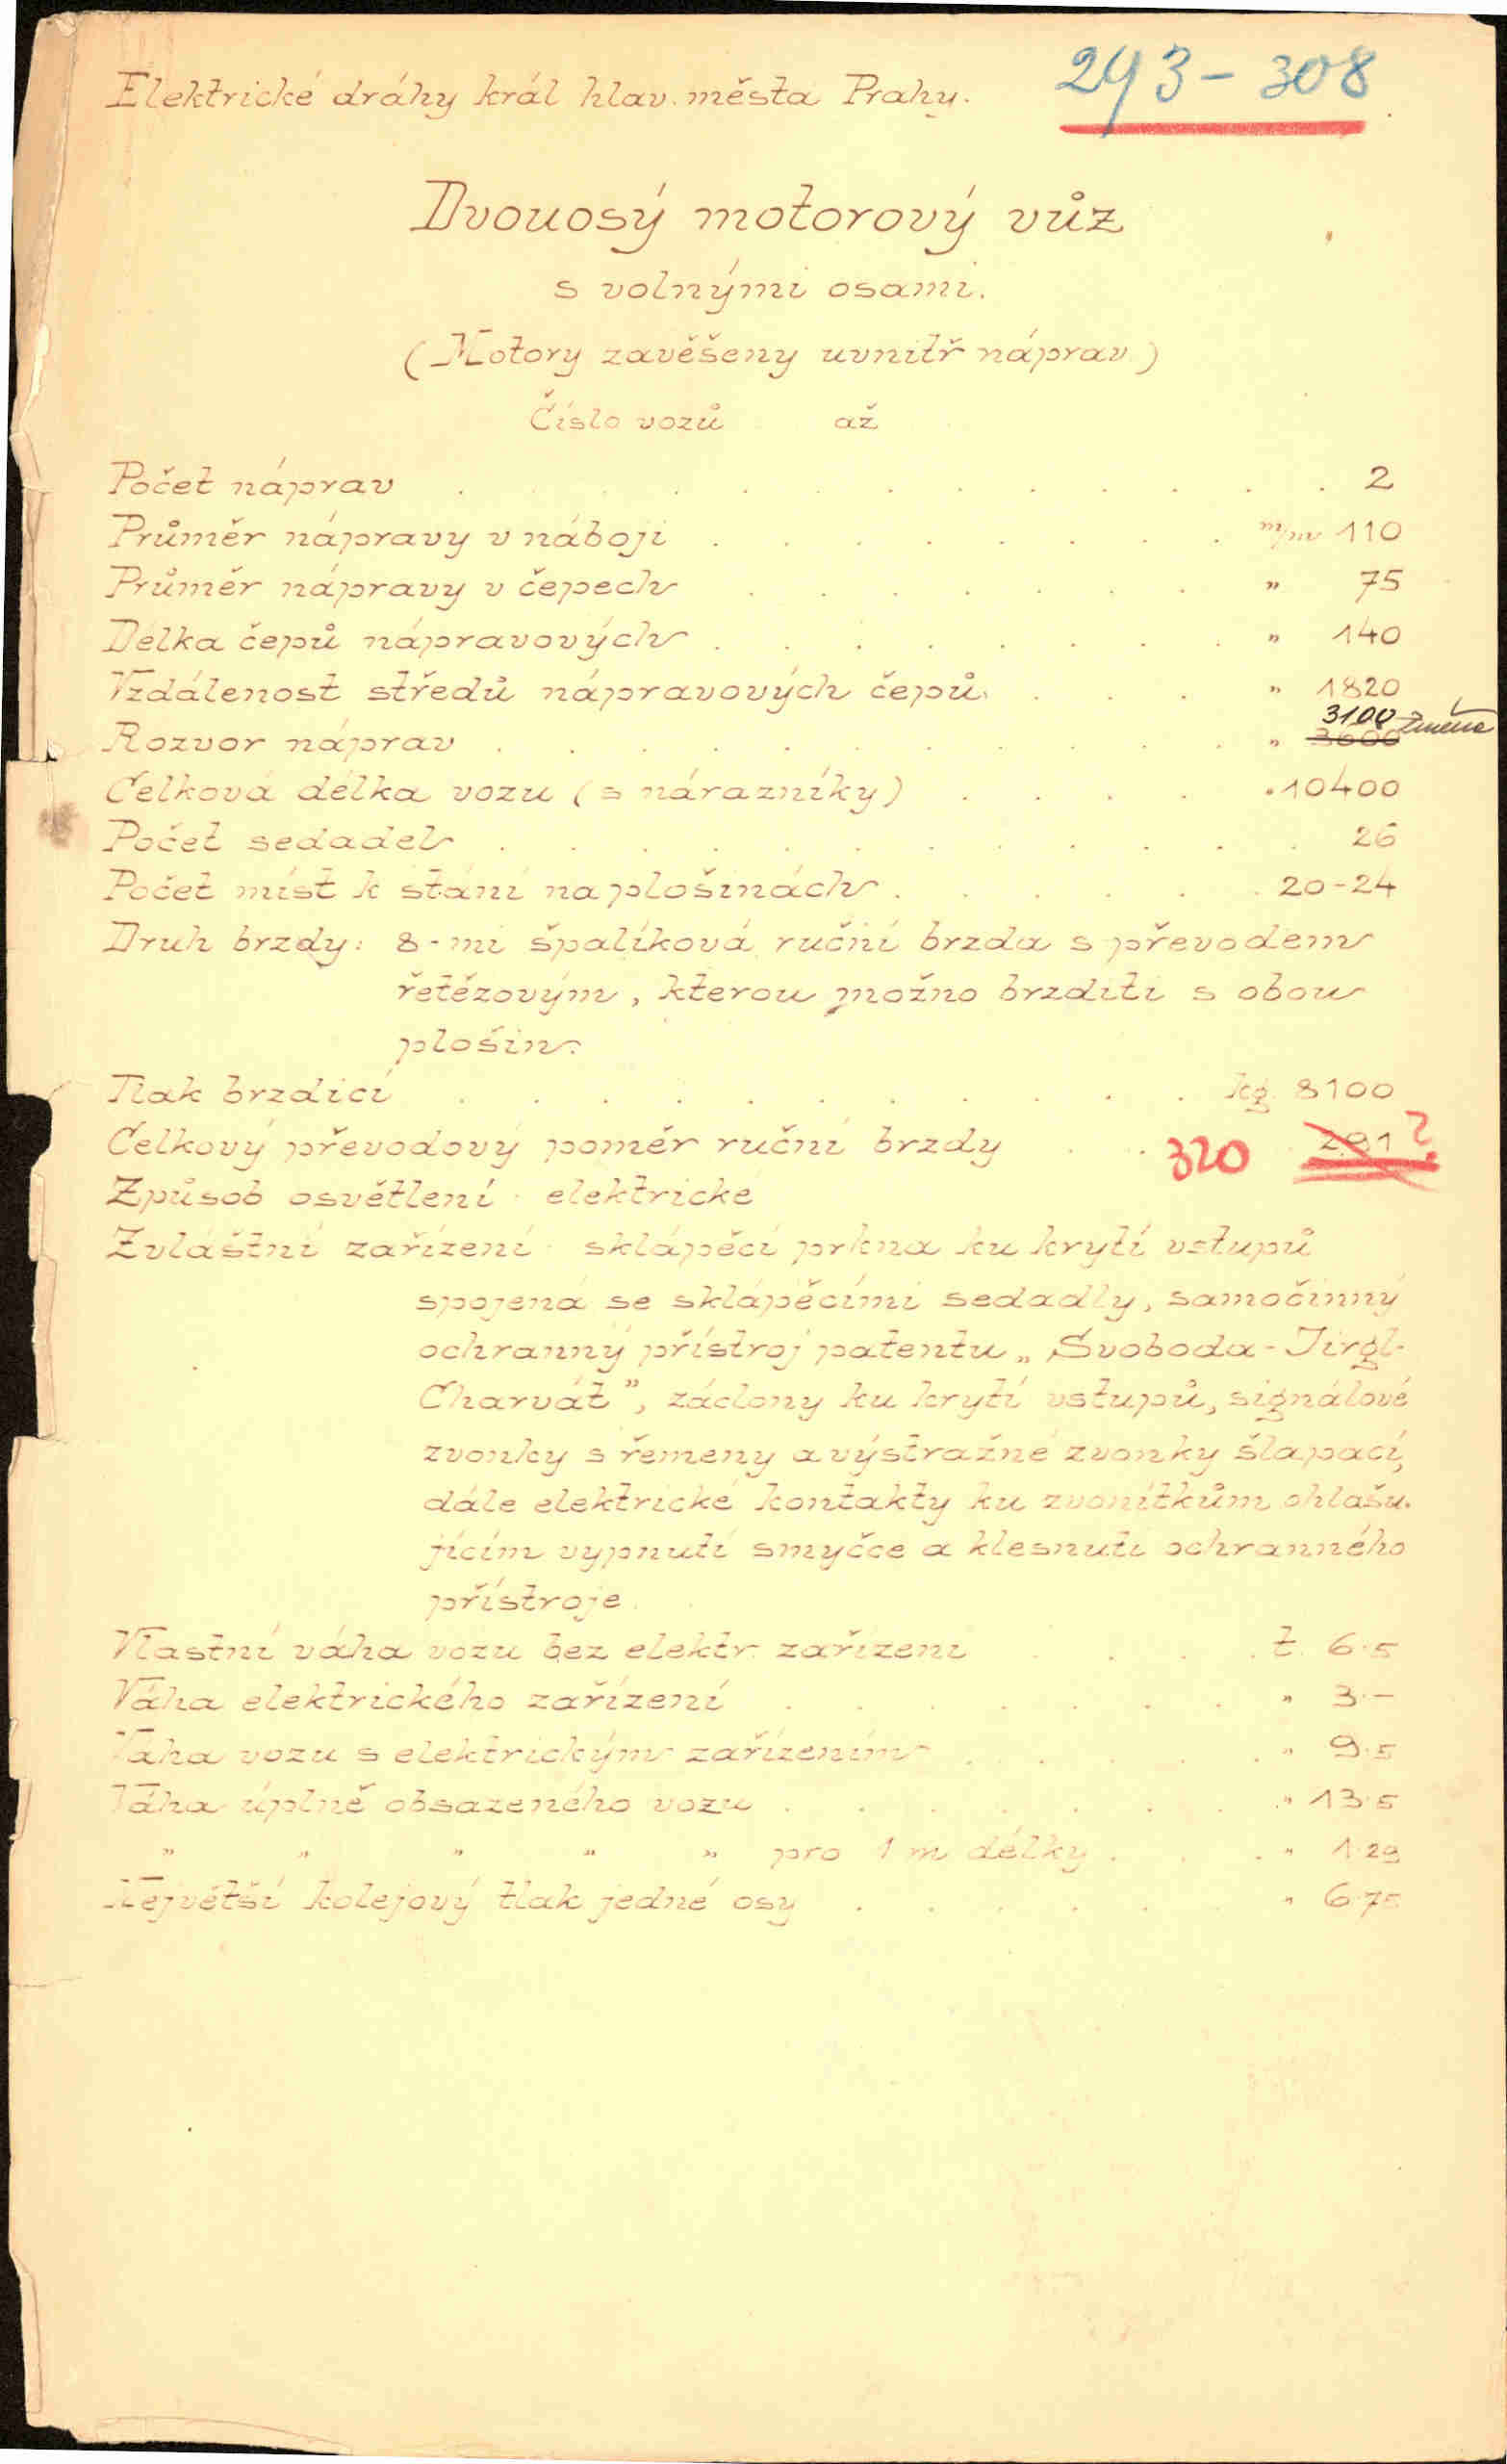 Elektrické dráhy král hlav. města Prahy.
293 - 308
Dvouosý motorový vůz
s volnými osami.
(Motory zavěšeny uvnitř náprav.)
Číslo vozů až
Počet náprav . . . . . . . . . . . . . 2
Průměr nápravy v náboji . . . . . . . . m/m 110
Průměr nápravy v čepech . . . . . . . " 75
Délka čepů nápravových . . . . . . . . " 140
Vzdálenost středů nápravových čepů. . . . " 1820
3100 změna
Rozvor náprav . . . . . . . . . . . " 3600
Celková délka vozu (s nárazníky) . . . . " 10400
Počet sedadel . . . . . . . . . . . . 26
Počet míst k stání na plošinách . . . . . . 20-24
Druh brzdy: 8-mi špalíková ruční brzda s převodem
řetězovým, kterou možno brzditi s obou
plošin.
Tlak brzdicí . . . . . . . . . . . kg. 8100
Celkový převodový poměr ruční brzdy . . 320 . 291 ?
Způsob osvětlení : elektrické
Zvláštní zařízení : sklápěcí prkna ku krytí vstupů
spojená se sklápěcími sedadly, samočinný
ochranný přístroj patentu „Svoboda - Jirgl-
Charvát", záclony ku krytí vstupů, signálové
zvonky s řemeny a výstražné zvonky šlapací,
dále elektrické kontakty ku zvonítkům ohlašu-
jícím vypnutí smyčce a klesnutí ochranného
přístroje.
Vlastní váha vozu bez elektr. zařízení . . . . t. 6·5
Váha elektrického zařízení . . . . . . . " 3·—
Váha vozu s elektrickým zařízením . . . . . " 9·5
Váha úplně obsazeného vozu . . . . . . . " 13·5
" " " " " pro 1 m délky . . . " 1·29
Největší kolejový tlak jedné osy . . . . . . " 6·75